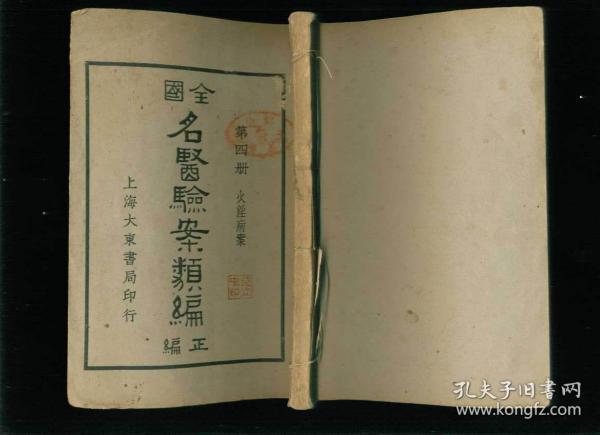 全國
名醫驗案類編
正編
第四册 火淫病案
上海大東書局印行
孔夫子旧书网
www.kongfz.com